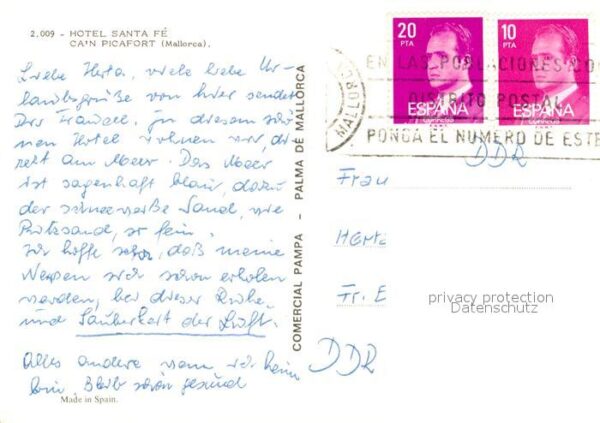 2.009 - HOTEL SANTA FÉ
CA'N PICAFORT (Mallorca).
Liebe Herta, viele liebe Ur-
laubsgrüße von hier sendet
Dir In diesem schö-
nen Hotel wohnen wir, di-
rekt am Meer. Das Meer
ist sagenhaft blau, dazu
der schneeweiße Sand, wie
Putzsand, so fein.
Ich hoffe schon, daß meine
Nerven sich schön erholen
werden, bei dieser Ruhe
und Sauberkeit der Luft.
Alles andere wenn ich heim
bin. Bleib schön gesund
Made in Spain.
COMERCIAL PAMPA - PALMA DE MALLORCA
20
PTA
ESPAÑA
correos
10
PTA
ESPAÑA
correos
MALLORCA
EN LAS POBLACIONES CON
DISTRITO POSTAL
PONGA EL NUMERO DE ESTE
DDR
Frau
Herta
Fr. E
privacy protection
Datenschutz
DDR